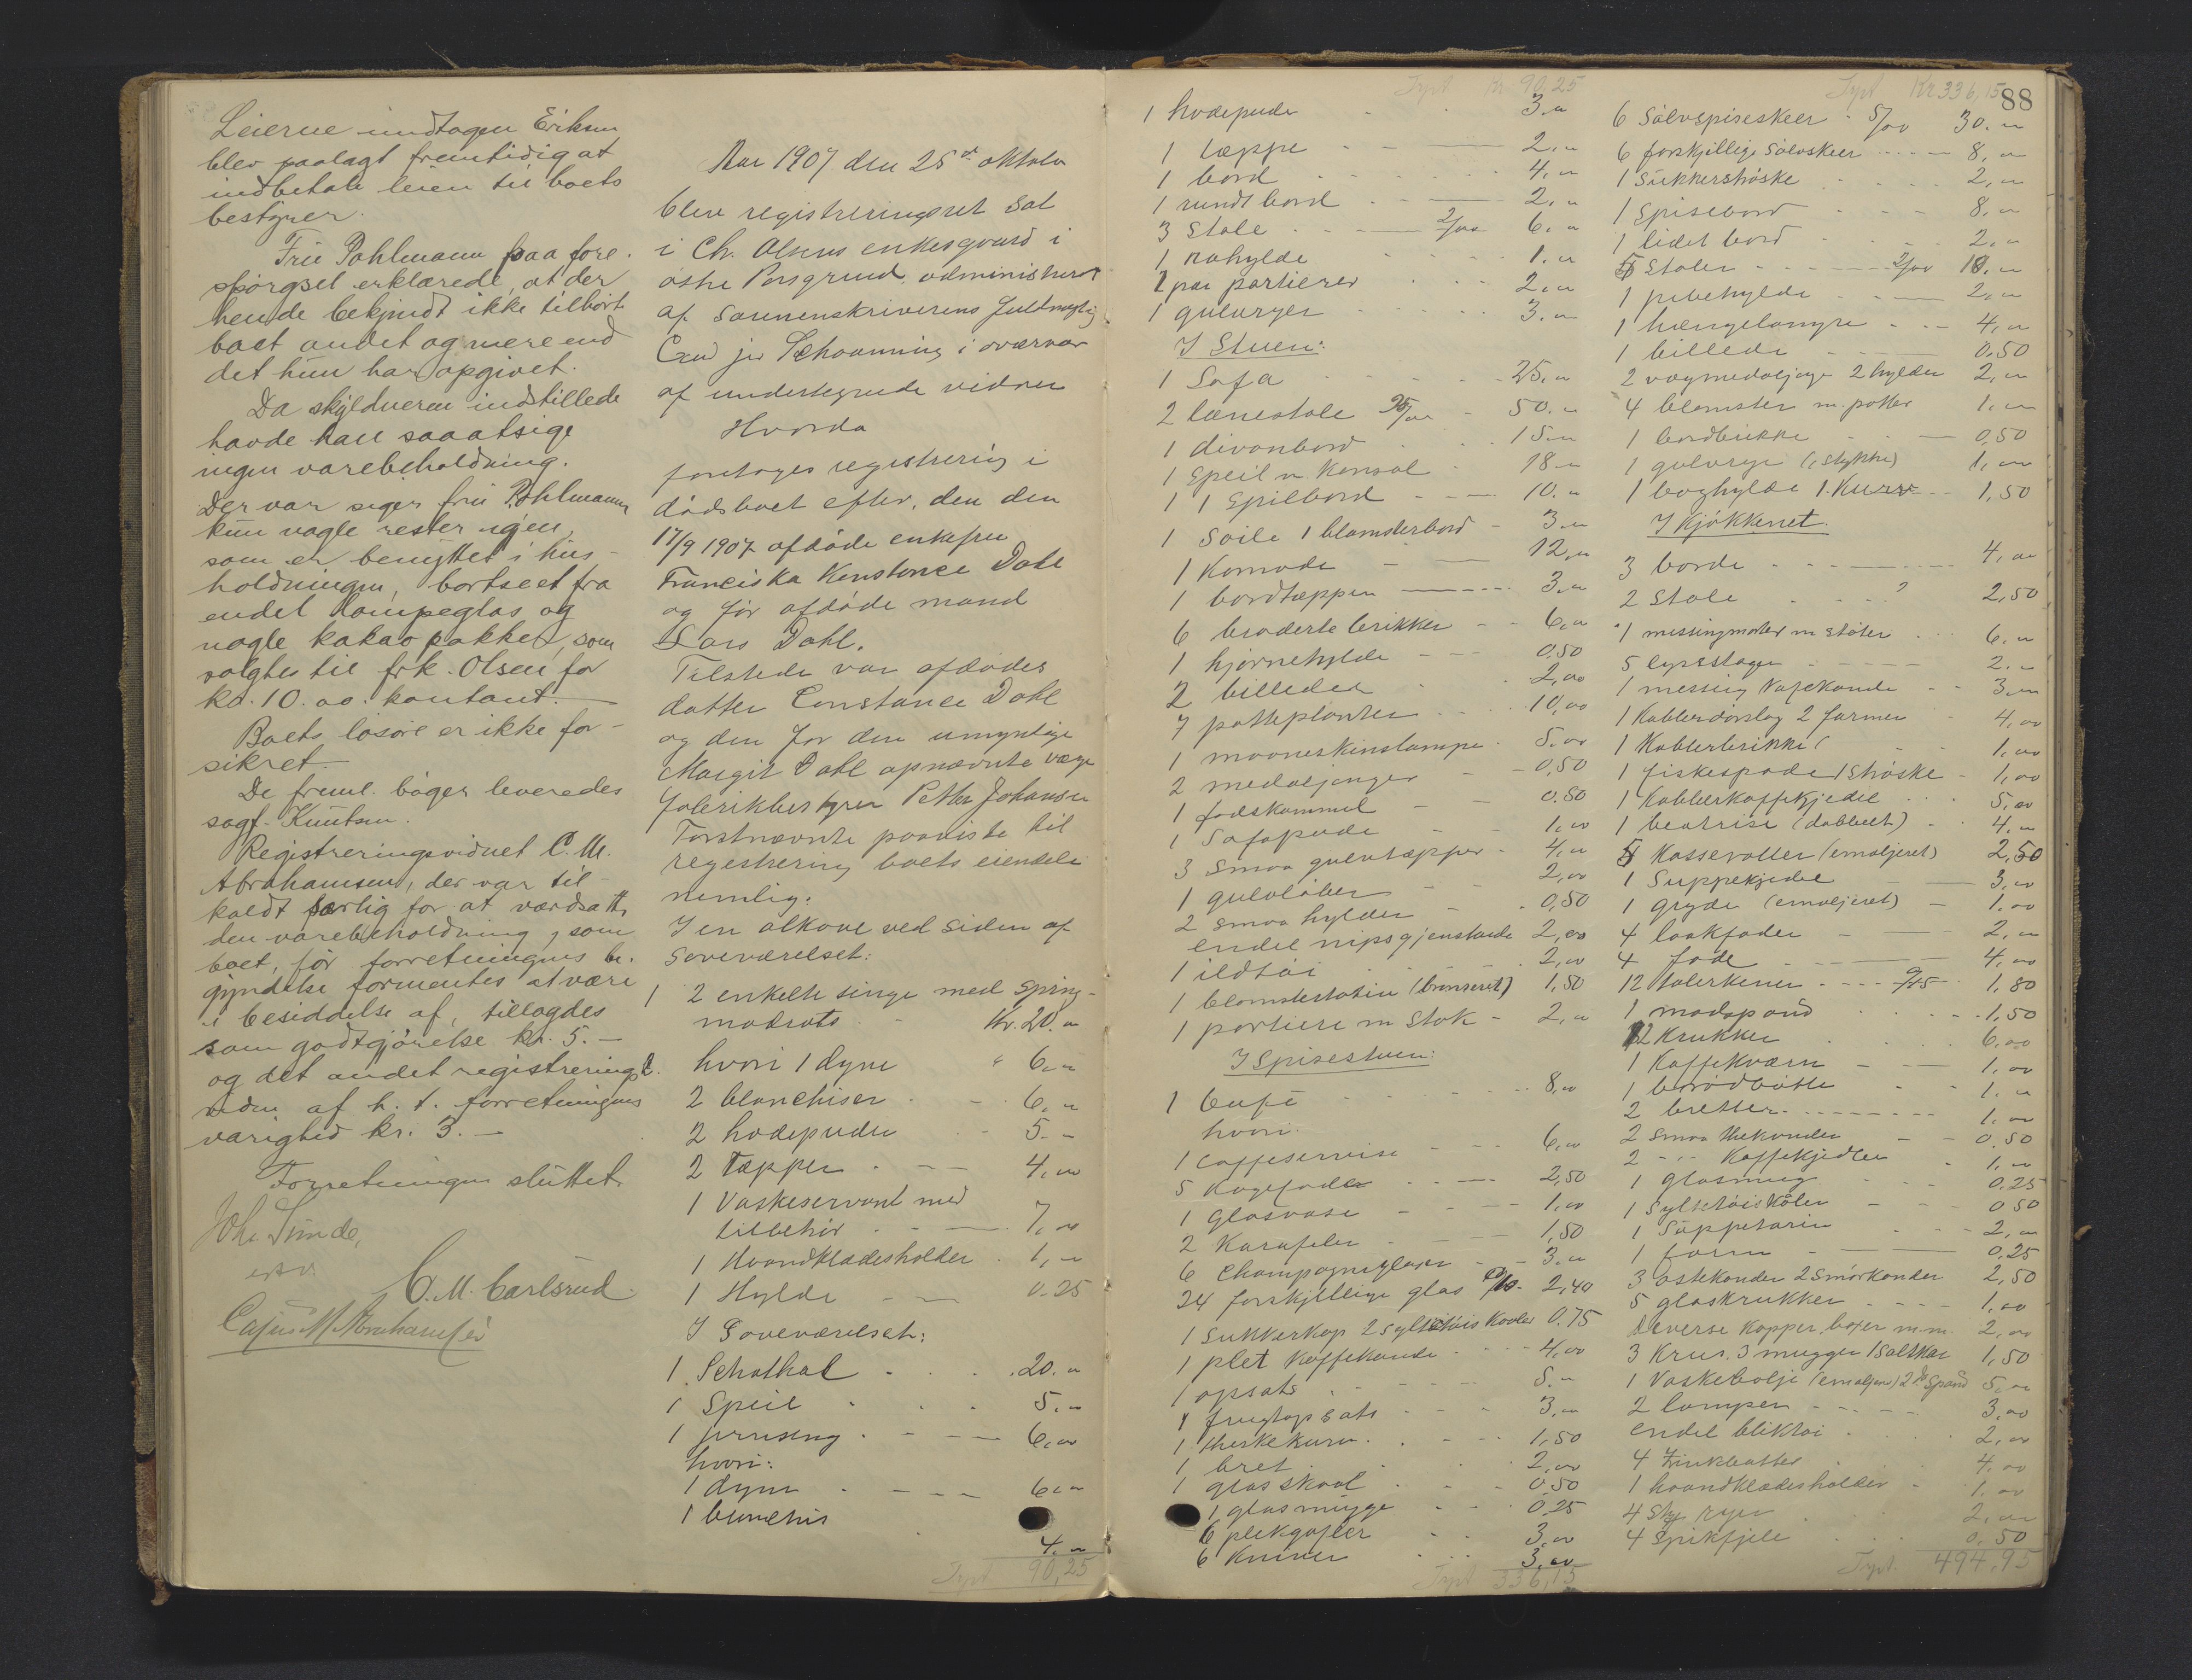 Leierne undtagen Eriksen
blev paalagt fremtidig at
indbetale leien til boets
bestyrer.
Fru Pohlmann paa fore-
spörgsel erklærede, at der
hende bekjendt ikke tilhört
boet andet og mere end
det hun har opgivet.
Da skyldneren indstillede
havde han saaatsige
ingen varebeholdning.
Der var siger fru Pohlmann
kun nogle rester igjen,
som er benyttet i hus-
holdningen, bortseet fra
endel lampeglas og
nogle kakao pakker, som
solgtes til frk. Olsen for
kr. 10.00 kontant.
Boets lösöre er ikke for-
sikret.
De freml. böger leveredes
sagf. Knutsen.
Registreringsvidnet C. M.
Abrahamsen, der var til-
kaldt særlig for at værdsætte
den varebeholdning, som
boet, för forretningens be-
gyndelse formentes at være
i besiddelse af, tillagdes
som godtgjörelse kr. 5.-
og det andet registrerings-
vidne af h. t. forretningens
varighed kr. 3.-
Forretningen sluttet.
Joh. Sunde,
C. M. Carlsrud.
Cajus M Abrahamsen
Aar 1907 den 25de oktober
blev registreringsret sat
i Ch. Olsens enkesgaard i
östre Porsgrund, administreret
af Sorenskriverens fuldmægtig
Cand jur Schaanning i overvær
af undertegnede vidner
Hvorda
foretoges registrering i
dödsboet efter, den den
17/9 1907 afdöde enkefru
Franciska Konstance Dahl
og för afdöde mand
Lars Dahl.
Tilstede var afdödes
datter Constance Dahl
og den for den umyndige
Margit Dahl opnævnte værge
fabrikbestyrer Petter Johansen
Förstnævnte paaviste til
registrering boets eiendele
nemlig:
I en alkove ved siden af
Soveværelset:
1 2 enkelte senge med spring-
madrats - Kr. 20.00
hvori 1 dyne " 6.00
2 blanchiser - 6.00
2 hodepuder - 5.-
2 Tæpper - 4,00
1 Vaskeservant med
tilbehör - 7,00
1 Haandklædesholder . 1,00
1 Hylde - 0.25
I Soveværelset:
1 Schathol . 20.00
1 Speil . 5.00
1 jernseng . 6,00
hvori:
1 dyne - 6,00
1 blanchis
4.00
Typt 90,25
Typt Kr. 90,25
1 hodepude 3.00
1 tæppe - 2,00
1 bord 4,00
1 rundt bord - 2,00
3 Stole 2/00 6,00
1 Rohylde 1.00
1 par portierer 2,00
1 gulvryer 3.00
I Stuen:
1 Sofa 25,00
2 lænestole 25/00 - 50.00
1 divanbord 15.00
1 Speil m. Konsol 18.00
1 1 Spilbord 10.00
1 Soile 1 blomsterbord - 3.00
1 Komode - 12,00
1 bordtæppe 3.00
6 broderte brikker - 6,00
1 hjörnehylde 0.50
2 billeder 2,00
7 potteplanter 10,00
1 maaneskinslampe 5.00
2 medaljonger - 0,50
1 fodskammel 0.50
1 Sofapude 1,00
3 smaa gulvtæpper - 4,00
1 gulvlöber 2,00
2 smaa hylder 0,50
endel nipsgjenstande 2,00
1 ildtöi 2,00
1 blomsterstativ (bronseret) 1,50
1 portiere m Stok - 2,00
I Spisestuen:
1 Bufe 8,00
hvori:
1 caffeservise 6,00
5 Kagefade 2,50
1 glasvase 1,00
2 Karafler 1,50
6 Champagneglaser 3.00
24 forskjellige glas 0/10 - 2,40
1 Sukkerkop 2 syltetöis Kaaler 0.75
1 plet Kaffekande 4,00
1 opsats 5.00
1 frugtopsats 3,00
1 1,50
1 bret 2,00
1 glasskaal 0,50
1 glasmugge 0.25
6 pletgafler 3,00
6 Kniver 3,00
Typt 336,15
Typt Kr 336,15
88
6 Sölvspiseskeer 5/00 30.00
6 forskjellige Sölvskeer 8,00
1 Sukkerskøske 2,00
1 Spisebord 8,00
1 lidet bord 2,00
Stoler 2/00 18.00
1 pibehylde 2,00
1 hængelampe 4,00
1 billede 0,50
2 vægmedaljonger 2 hylder 2,00
4 blomster m. potter 1,00
1 bordbrikke 0,50
1 gulvrye (1 stykke) 1,00
1 boghylde 1 Kurv 1,50
I Kjökkenet.
3 borde 4,00
2 Stole 2,50
1 messingmorter m stöter 6,00
5 lysestager 2.00
1 messing Kaffekande 3,00
1 Kobberdörslag 2 former 4,00
1 Kobberbrikke 1,00
1 fiskespade 1 Skøske 1,00
1 Kobberkaffekjedel 5,00
1 beatrise (dobbelt) 4,00
Kasseroller (emaljeret) 2,50
1 Suppekjedel 3,00
1 gryde (emaljeret) 1,00
4 laakfader 2,00
4 fade 4,00
12 tallerkener 0/15 1,80
1 madspand 1,50
12 Krukker 6,00
1 Kaffekværn 1,00
1 brödbötte 1.00
2 bretter 1,00
2 smaa thekander 0,50
2 -"- Kaffekjedler 1,00
1 glasmug 0.25
1 Syltetöiskåler 0 50
1 Suppeterin 2,00
1 form 0,25
3 ostekander 2 smörkander 2,50
5 glaskrukker 1,00
Diverse kopper, boxer m.m. 2,00
3 Krus, 3 mugger 1 saltkar 1,50
1 Vaskebolje (emaljeret) 2 do spand 5,00
2 lamper 3,00
endel bliktöi 2,00
4 Zinkbøtter 4,00
1 haandklædesholder 1,00
4 Stkr ryer 2,00
4 Spikfjele 0,50
Typt. 494,95